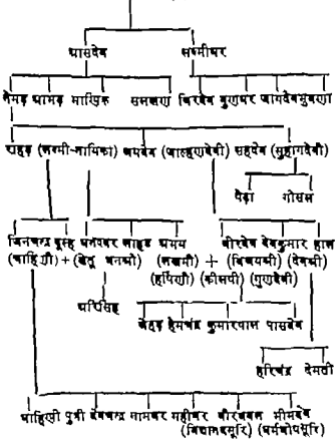 धासदेव लक्ष्मीधर
नेमड़ धामड़ माणिक सलखण थिरदेव गुणधर जगदेव भुवणा
राहड़ (लक्ष्मी-नायिका) जयदेव (जाल्हणदेवी) सहदेव (सुहागदेवी)
पेढ़ा गोसल
जिनचन्द्र दूल्ह धनेश्वर लाहड अभय वीरदेव देवकुमार हाल
(चाहिणी) + (बेतू धनश्री) (लखमी) + (विजयश्री) (देवश्री)
(हर्षिणी) (गुणदेवी)
अरिसिंह
जेहड़ हेमचंद्र कुमारपाल पासदेव
हरिचंद्र देमती
चाहिणी पुत्री देवचन्द्र नामधर महीधर वीरधवल भीमदेव
(विद्यानंदसूरि) (धर्मघोषसूरि)